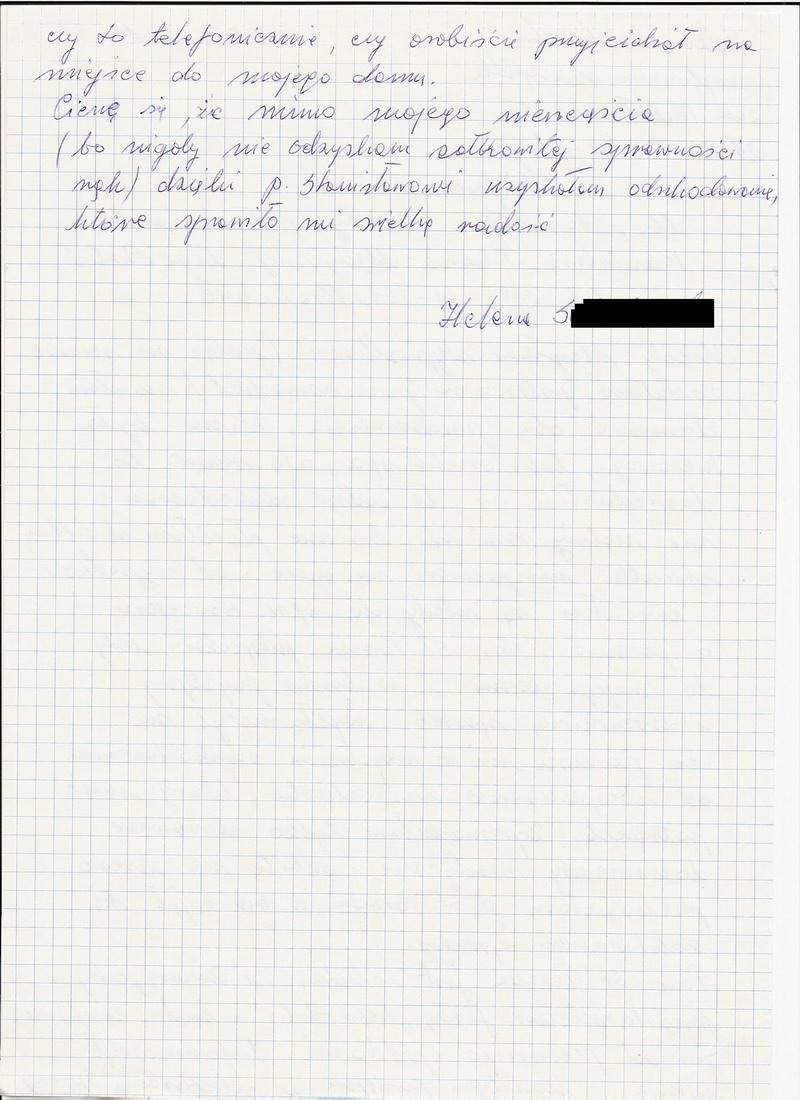 czy to telefonicznie, czy osobiście przyjeżdżał na
miejsce do mojego domu.
Cieszę się, że mimo mojego nieszczęścia
(bo nigdy nie odzyskam całkowitej sprawności
rąk) dzięki p. Stanisławowi uzyskałam odszkodowanie,
które sprawiło mi wielką radość
Helena S